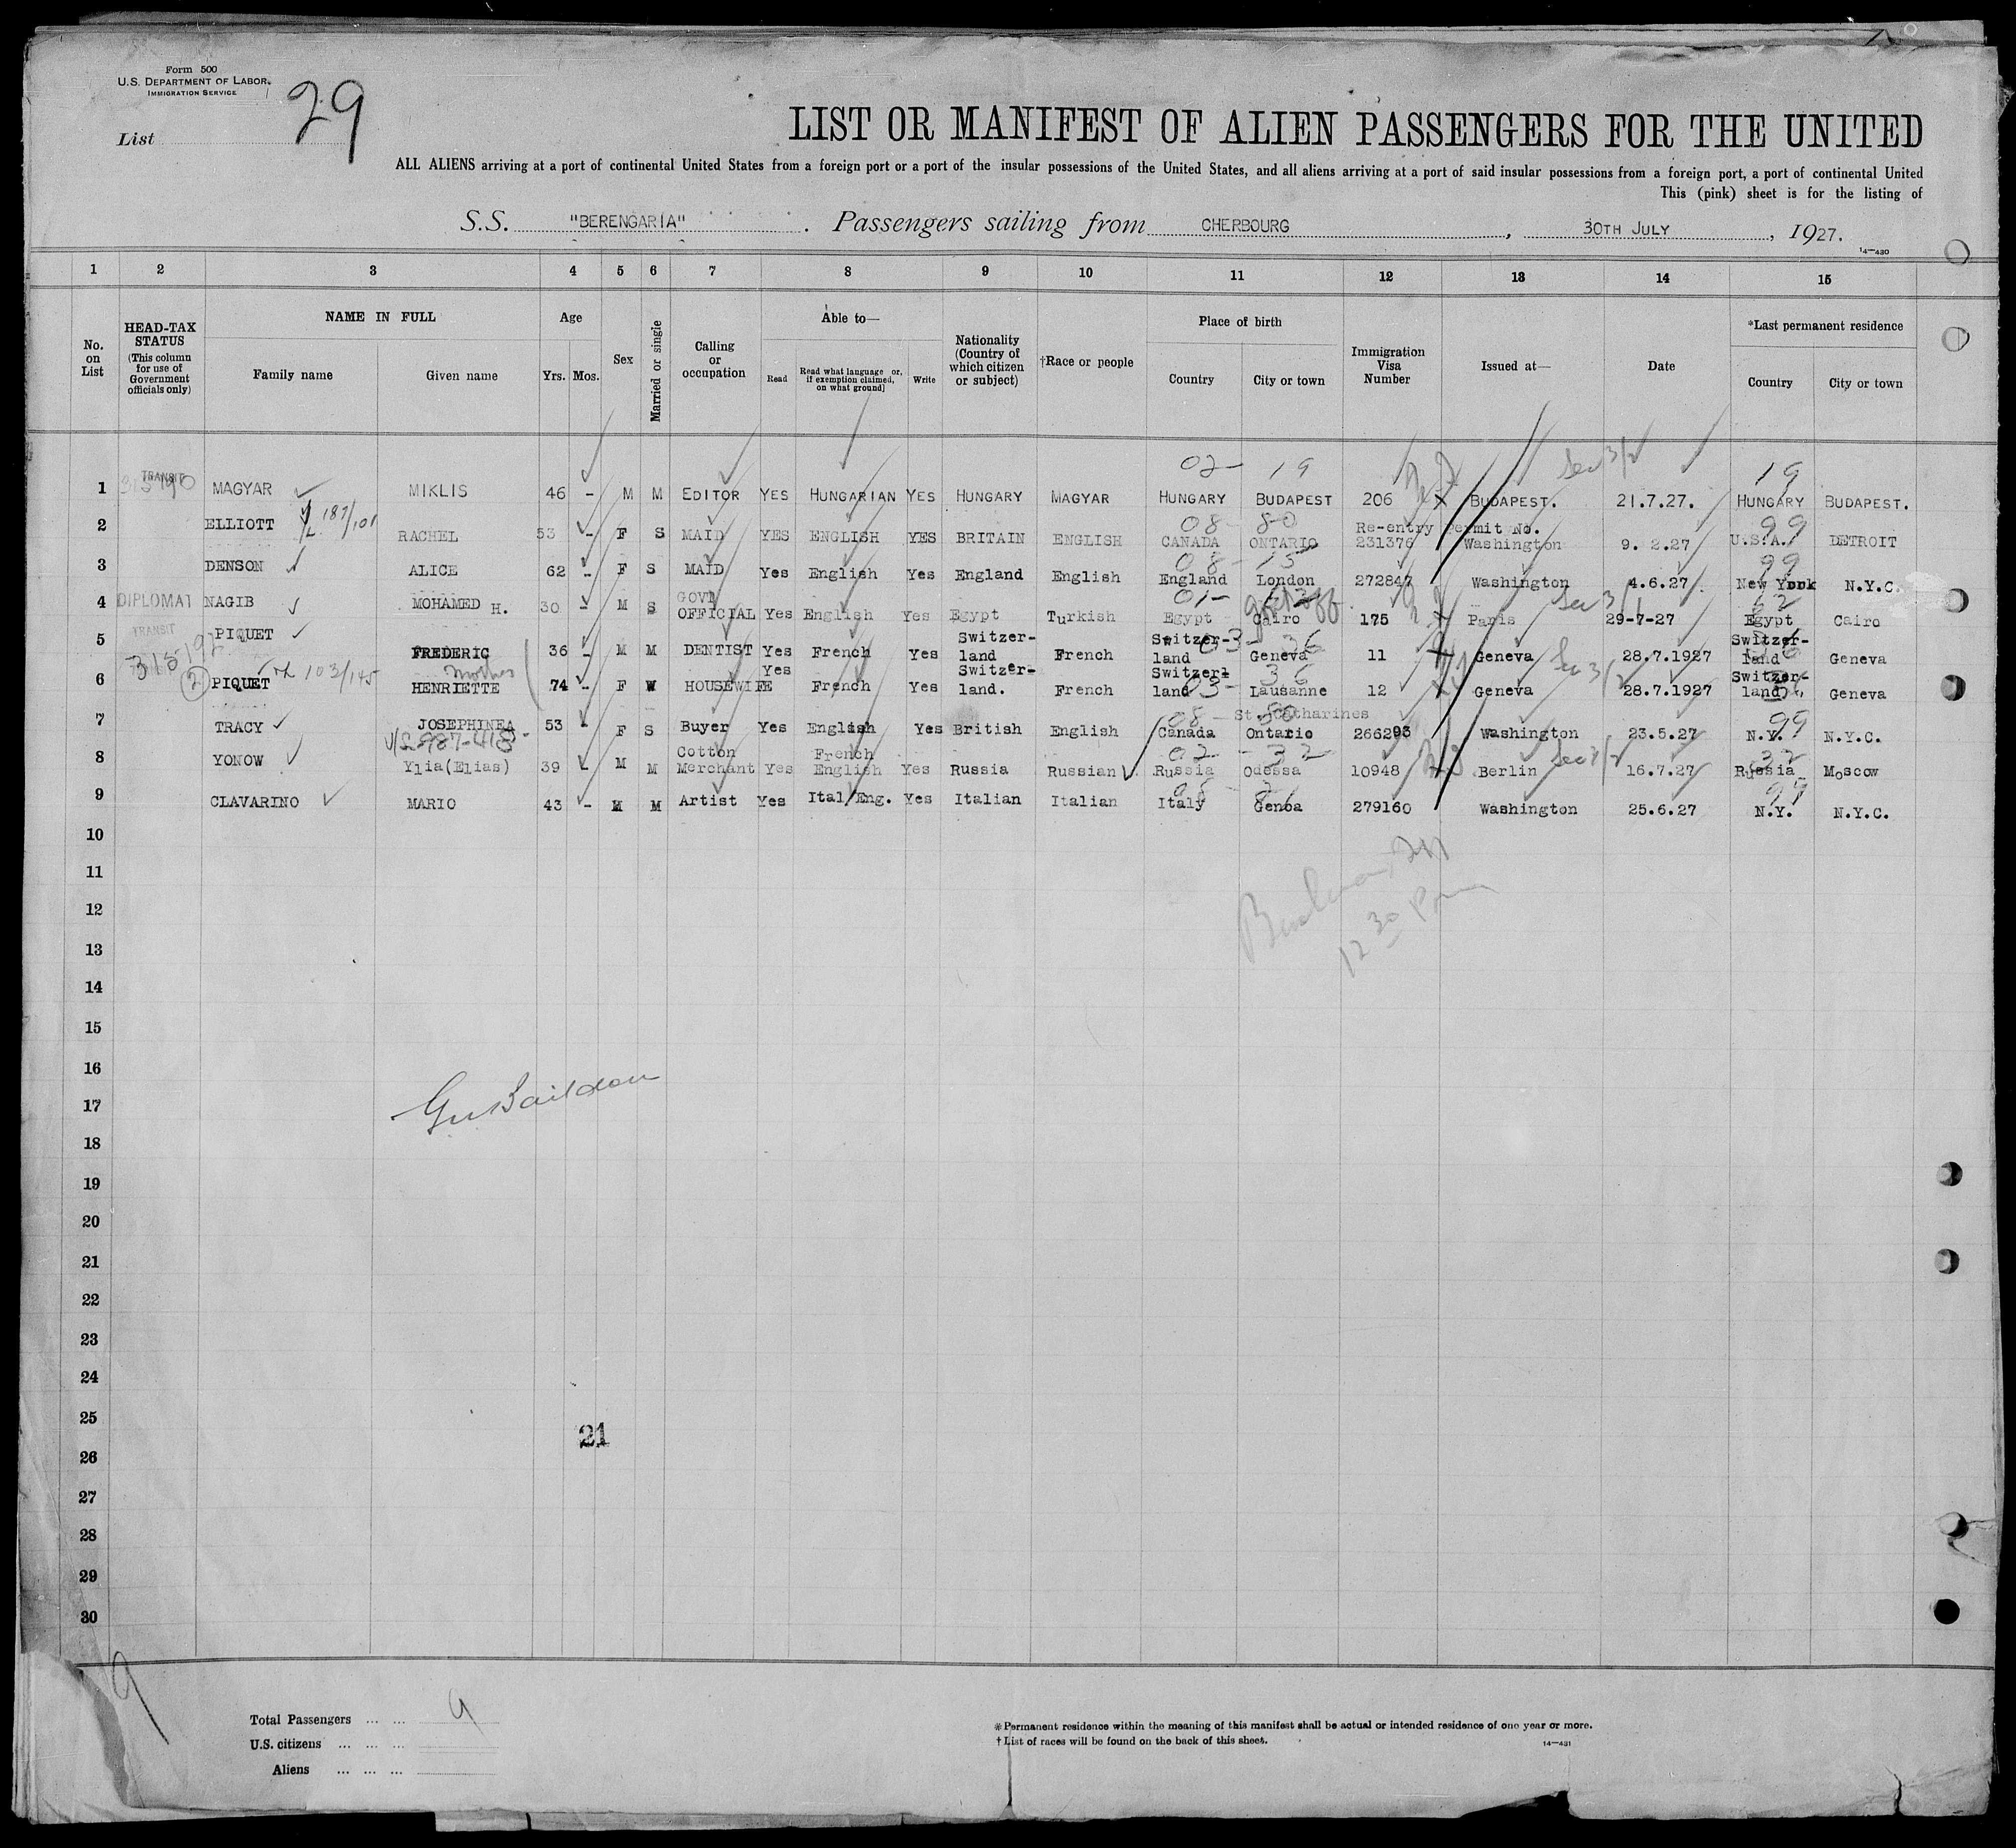 Form 500
U.S. DEPARTMENT OF LABOR
IMMIGRATION SERVICE
29
List
LIST OR MANIFEST OF ALIEN PASSENGERS FOR THE UNITED
ALL ALIENS arriving at a port of continental United States from a foreign port or a port of the insular possessions of the United States, and all aliens arriving at a port of said insular possessions from a foreign port, a port of continental United
This (pink) sheet is for the listing of
S.S. "BERENGARIA". Passengers sailing from CHERBOURG, 30TH JULY, 1927.
14—430
1 2 3 4 5 6 7 8 9 10 11 12 13 14 15
No. on List
HEAD-TAX STATUS (This column for use of Government officials only)
NAME IN FULL
Family name Given name
Age
Yrs. Mos.
Sex
Married or single
Calling or occupation
Able to—
Read Read what language or, if exemption claimed, on what ground] Write
Nationality (Country of which citizen or subject)
†Race or people
Place of birth
Country City or town
Immigration Visa Number
Issued at—
Date
*Last permanent residence
Country City or town
02- 19 Sec 3/2 19
1 TRANSIT MAGYAR MIKLIS 46 – M M EDITOR YES HUNGARIAN YES HUNGARY MAGYAR HUNGARY BUDAPEST 206 BUDAPEST. 21.7.27. HUNGARY BUDAPEST.
187/101 08- 80 Re-entry Permit No. 99
2 ELLIOTT RACHEL 53 – F S MAID YES ENGLISH YES BRITAIN ENGLISH CANADA ONTARIO 231376 Washington 9. 2.27 U.S.A. DETROIT
08- 15 99
3 DENSON ALICE 62 – F S MAID Yes English Yes England English England London 272847 Washington 4.6.27 New York N.Y.C.
01- Sec 3/1
4 DIPLOMAT NAGIB MOHAMED H. 30 – M S GOVT OFFICIAL Yes English Yes Egypt Turkish Egypt Cairo 175 Paris 29-7-27 Egypt Cairo
5 TRANSIT PIQUET FREDERIC 36 – M M DENTIST Yes French Yes Switzer-land French Switzer-land 03- 36 Geneva 11 Geneva 28.7.1927 Switzer-land Geneva
315192 103/145 mother Sec 3/2
6 2 PIQUET HENRIETTE 74 – F W HOUSEWIFE Yes French Yes Switzer-land. French Switzerl-land 03- 36 Lausanne 12 Geneva 28.7.1927 Switzer-land Geneva
08- 80 St. Catharines 99
7 TRACY JOSEPHINEA 53 – F S Buyer Yes English Yes British English Canada Ontario 266293 Washington 23.5.27 N.Y. N.Y.C.
02- 32 Sec 3/2 32
8 YONOW Ylia(Elias) 39 – M M Cotton Merchant Yes French English Yes Russia Russian Russia Odessa 10948 Berlin 16.7.27 Russia Moscow
99
9 CLAVARINO MARIO 43 – M M Artist Yes Ital/Eng. Yes Italian Italian Italy Genoa 279160 Washington 25.6.27 N.Y. N.Y.C.
10
11
12
12 30 Pm
13
14
15
16
17
18
19
20
21
22
23
24
25
21
26
27
28
29
30
9
Total Passengers ... ... 9
U.S. citizens ... ... ...
Aliens ... ... ...
*Permanent residence within the meaning of this manifest shall be actual or intended residence of one year or more.
†List of races will be found on the back of this sheet.
14—431